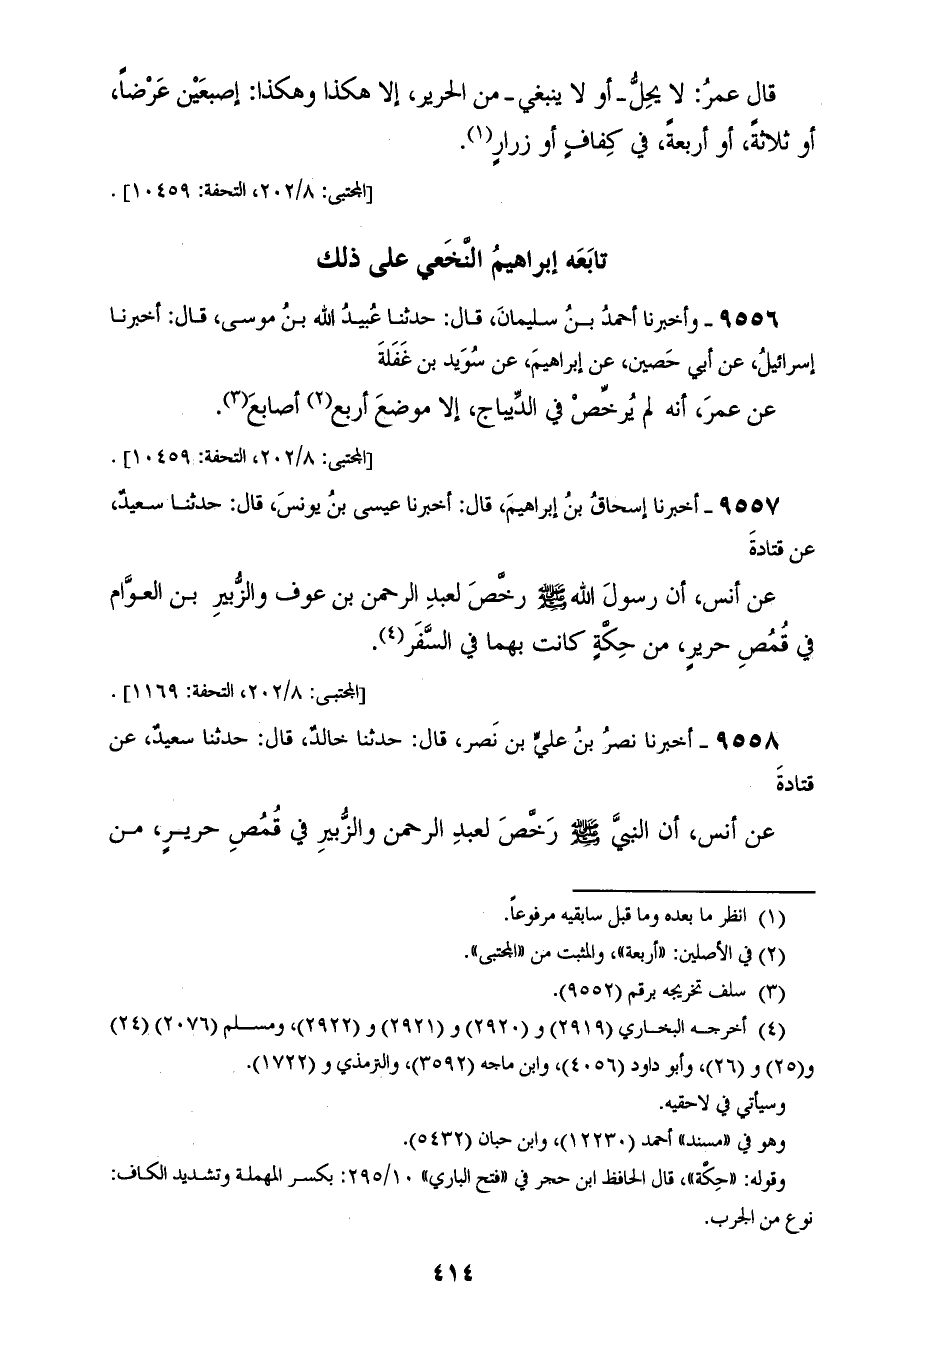 قال عمرُ: لا يحِلُّ ـ أو لا ينبغي ـ من الحرير، إلا هكذا وهكذا: إصبعَيْن عَرْضاً،
أو ثلاثةً، أو أربعةً، في كِفافٍ أو زرارٍ(١).
[المجتبى: ٢٠٢/٨، التحفة: ١٠٤٥٩] .
تابَعَه إبراهيمُ النَّخَعي على ذلك
٩٥٥٦ ـ وأخبرنا أحمدُ بـنُ سليمانَ، قال: حدثنـا عُبيـدُ الله بـنُ موسى، قـال: أخبرنـا
إسرائيلُ، عن أبي حَصين، عن إبراهيمَ، عن سُوَيد بن غَفَلَةَ
عن عمرَ، أنه لم يُرخِّصْ في الدِّيباج، إلا موضعَ أربع(٢) أصابعَ(٣).
[المجتبى: ٢٠٢/٨، التحفة: ١٠٤٥٩] .
٩٥٥٧ ـ أخبرنا إسحاقُ بنُ إبراهيمَ، قال: أخبرنا عيسى بنُ يونسَ، قال: حدثنـا سـعيدٌ،
عن قتادةَ
عن أنس، أن رسولَ الله ﷺ رخَّصَ لعبدِ الرحمن بن عوف والزُّبيرِ بـن العـوَّام
في قُمُصِ حريرٍ، من حِكَّةٍ كانت بهما في السَّفَر(٤).
[المجتبـى: ٢٠٢/٨، التحفة: ١١٦٩] .
٩٥٥٨ ـ أخبرنا نصرُ بنُ عليِّ بن نَصر، قال: حدثنا خالدٌ، قال: حدثنا سعيدٌ، عن
قتادةَ
عن أنس، أن النبيَّ ﷺ رَخَّصَ لعبدِ الرحمن والزُّبيرِ في قُمُصِ حريـرٍ، مـن
(١) انظر ما بعده وما قبل سابقيه مرفوعاً.
(٢) في الأصلين: «أربعة»، والمثبت من «المجتبى».
(٣) سلف تخريجه برقم (٩٥٥٢).
(٤) أخرجـه البخـاري (٢٩١٩) و (٢٩٢٠) و (٢٩٢١) و (٢٩٢٢)، ومسـلم (٢٠٧٦) (٢٤)
و(٢٥) و (٢٦)، وأبو داود (٤٠٥٦)، وابن ماجه (٣٥٩٢)، والترمذي و (١٧٢٢).
وسيأتي في لاحقيه.
وهو في «مسند» أحمد (١٢٢٣٠)، وابن حبان (٥٤٣٢).
وقوله: «حِكَّة»، قال الحافظ ابن حجر في «فتح الباري» ٢٩٥/١٠: بكسر المهملة وتشديد الكاف:
نوع من الجرب.
٤١٤